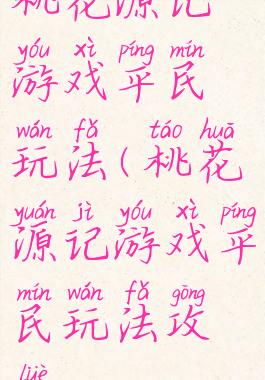 桃花源记
yóu xì píng mín
游戏平民
wán fǎ táo huā
玩法(桃花
yuán jì yóu xì píng
源记游戏平
mín wán fǎ gōng
民玩法攻
lüè